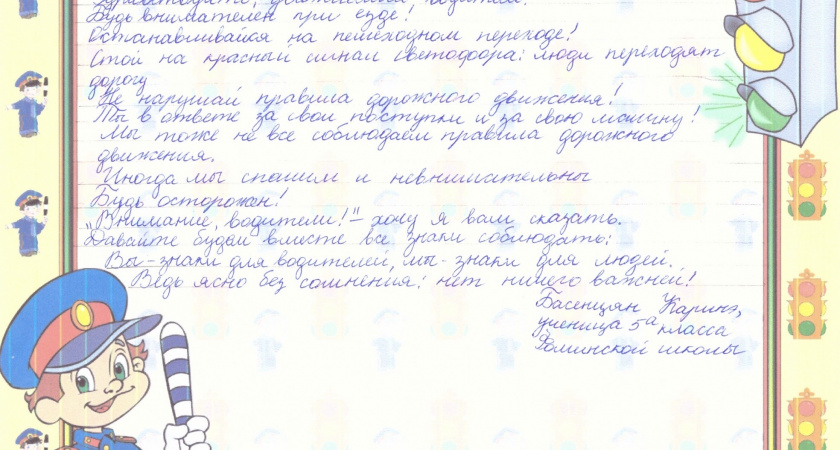 Здравствуйте, уважаемый водитель!
Будь внимателен при езде!
Останавливайся на пешеходном переходе!
Стой на красный сигнал светофора: люди переходят
дорогу
Не нарушай правила дорожного движения!
Ты в ответе за свои поступки и за свою машину!
Мы тоже не все соблюдаем правила дорожного
движения.
Иногда мы спешим и невнимательны
Будь осторожен!
"Внимание, водители!" - хочу я вам сказать.
Давайте будем вместе все знаки соблюдать:
Вы - знаки для водителей, мы - знаки для людей.
Ведь ясно без сомнения: нет ничего важней!
Басенцян Каринэ,
ученица 5а класса
Фоминской школы